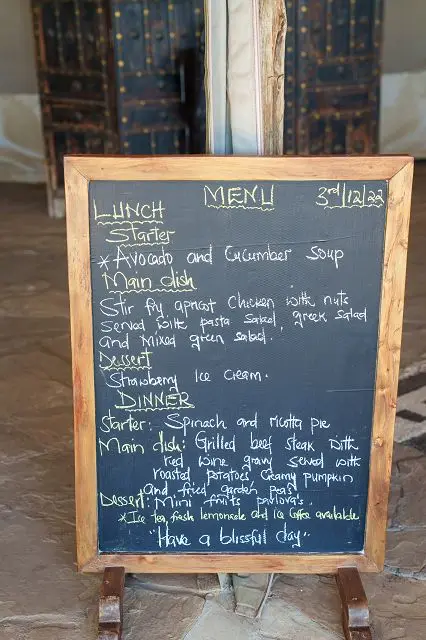 MENU 3rd/12/22
LUNCH
Starter
* Avocado and Cucumber Soup
Main dish
Stir fry apricot Chicken with nuts
Served with pasta Salad, greek Salad
and Mixed green Salad.
Dessert
Strawberry Ice Cream.
DINNER
Starter: Spinach and ricotta pie
Main dish: Grilled beef Steak with
red wine gravy served with
roasted potatoes Creamy pumpkin
and fried garden peas
Dessert: Mini fruits pavlova's.
*Ice tea, fresh lemonade and ice Coffee available
"Have a blissful day"